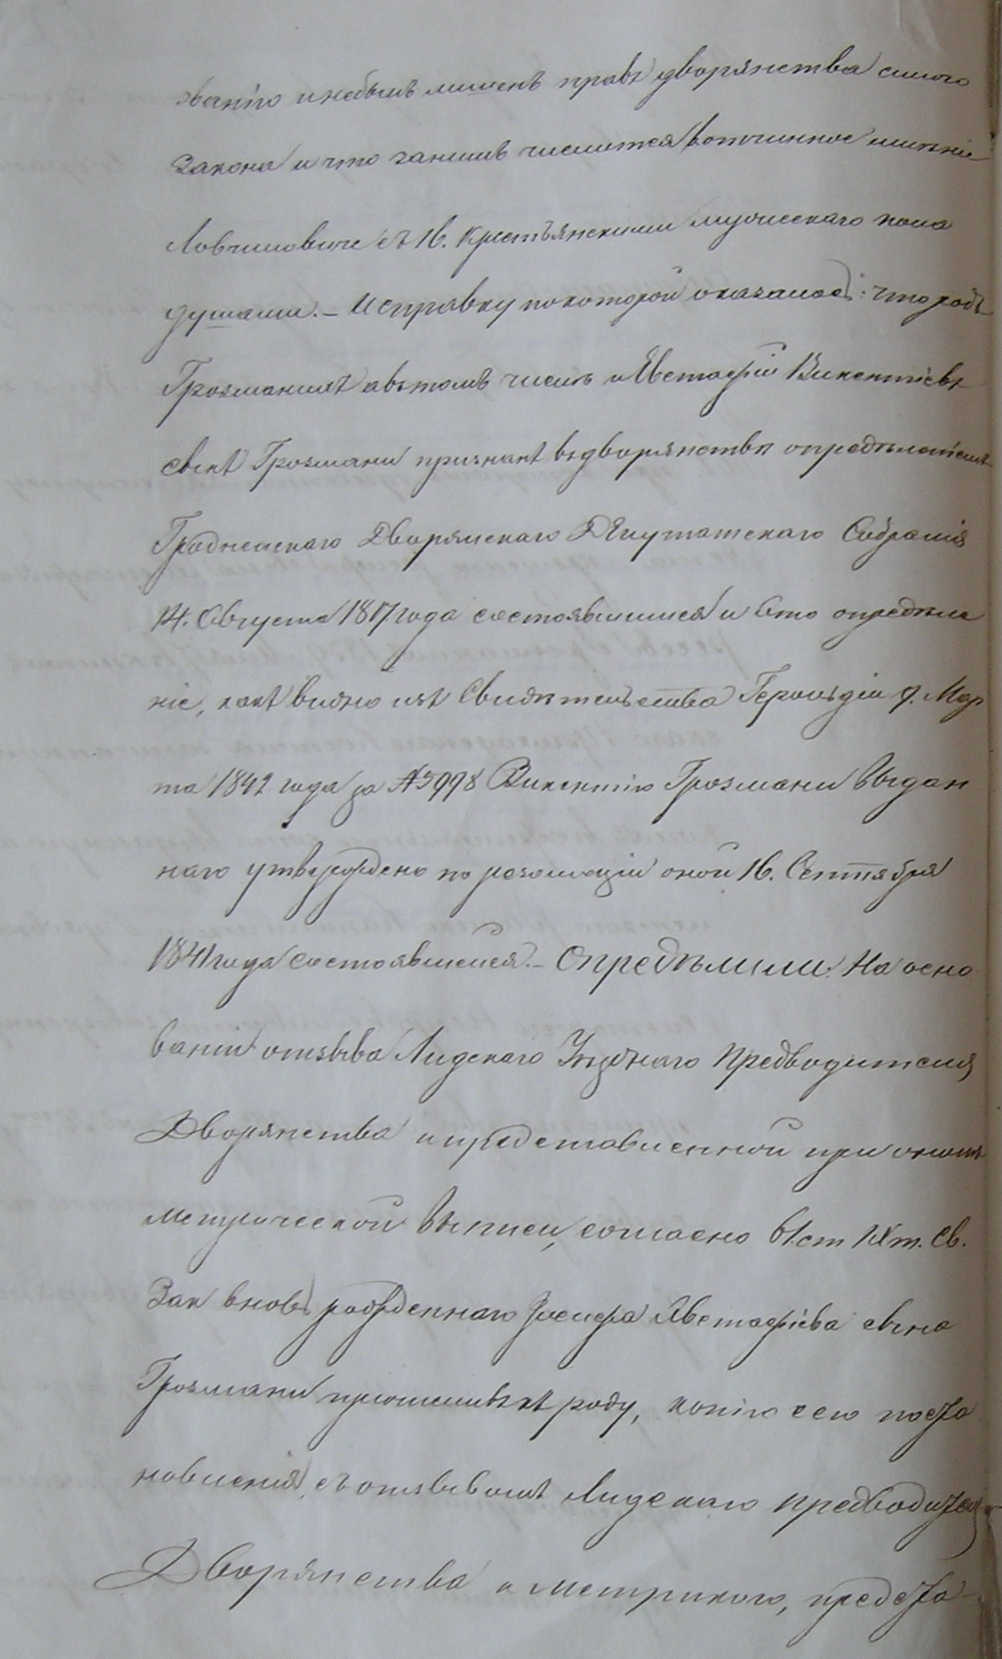 званію и небылъ лишенъ правъ дворянства силою
закона и что занимъ числится вотчинное имѣніе
Ловчиловичи съ 16. крестьянскими мужескаго пола
душами. – И справку по которой оказалось: что родъ
Грозмани въ томъ числѣ и Евстафій Викентіевъ
сынъ Грозмани признанъ въ дворянствѣ опредѣленіемъ
Гродненскаго Дворянскаго Депутатскаго Собранія
14. Августа 1817 года состоявшимся и что опредѣле
ніе, какъ видно изъ Свидѣтельства Герольдіи 9. Мар
та 1842 года за № 3998 Викентію Грозмани выдан
наго утверждено по резолюціи оной 16. Сентября
1841 года состоявшейся. – Опредѣлили: На осно
ваніи отзыва Лидскаго Уѣзднаго Предводителя
Дворянства и представленной при ономъ
метрической выписи, согласно ст IX т. Св.
Зак вновь рожденнаго Іосифа Евстафіева сына
Грозмани пріобщивъ къ роду, копію сего поста
новленія съ отзывомъ Лидскаго Предводителя
Дворянства и метрикою, предста